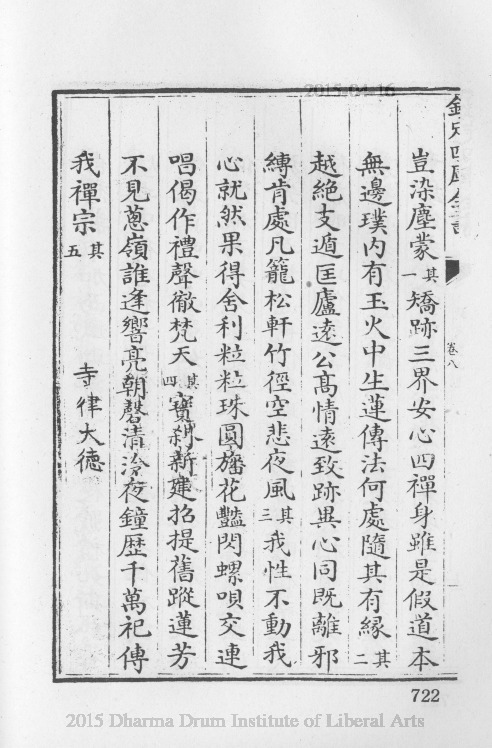 2015.04.16
欽定四庫全書
卷八
豈染塵蒙其一矯跡三界安心四禪身雖是假道本
無邊璞內有玉火中生蓮傳法何處隨其有緣其二
越絶支遁匡廬遠公髙情遠致跡異心同既離邪
縛肯處凡籠松軒竹徑空悲夜風其三我性不動我
心就然果得舍利粒粒珠圓旛花豔閃螺唄交連
唱偈作禮聲徹梵天其四寶刹新建招提舊蹤蓮芳
不見蔥嶺誰逢響亮朝磬清泠夜鐘歴千萬祀傳
我禪宗其五 寺律大德
722
2015 Dharma Drum Institute of Liberal Arts